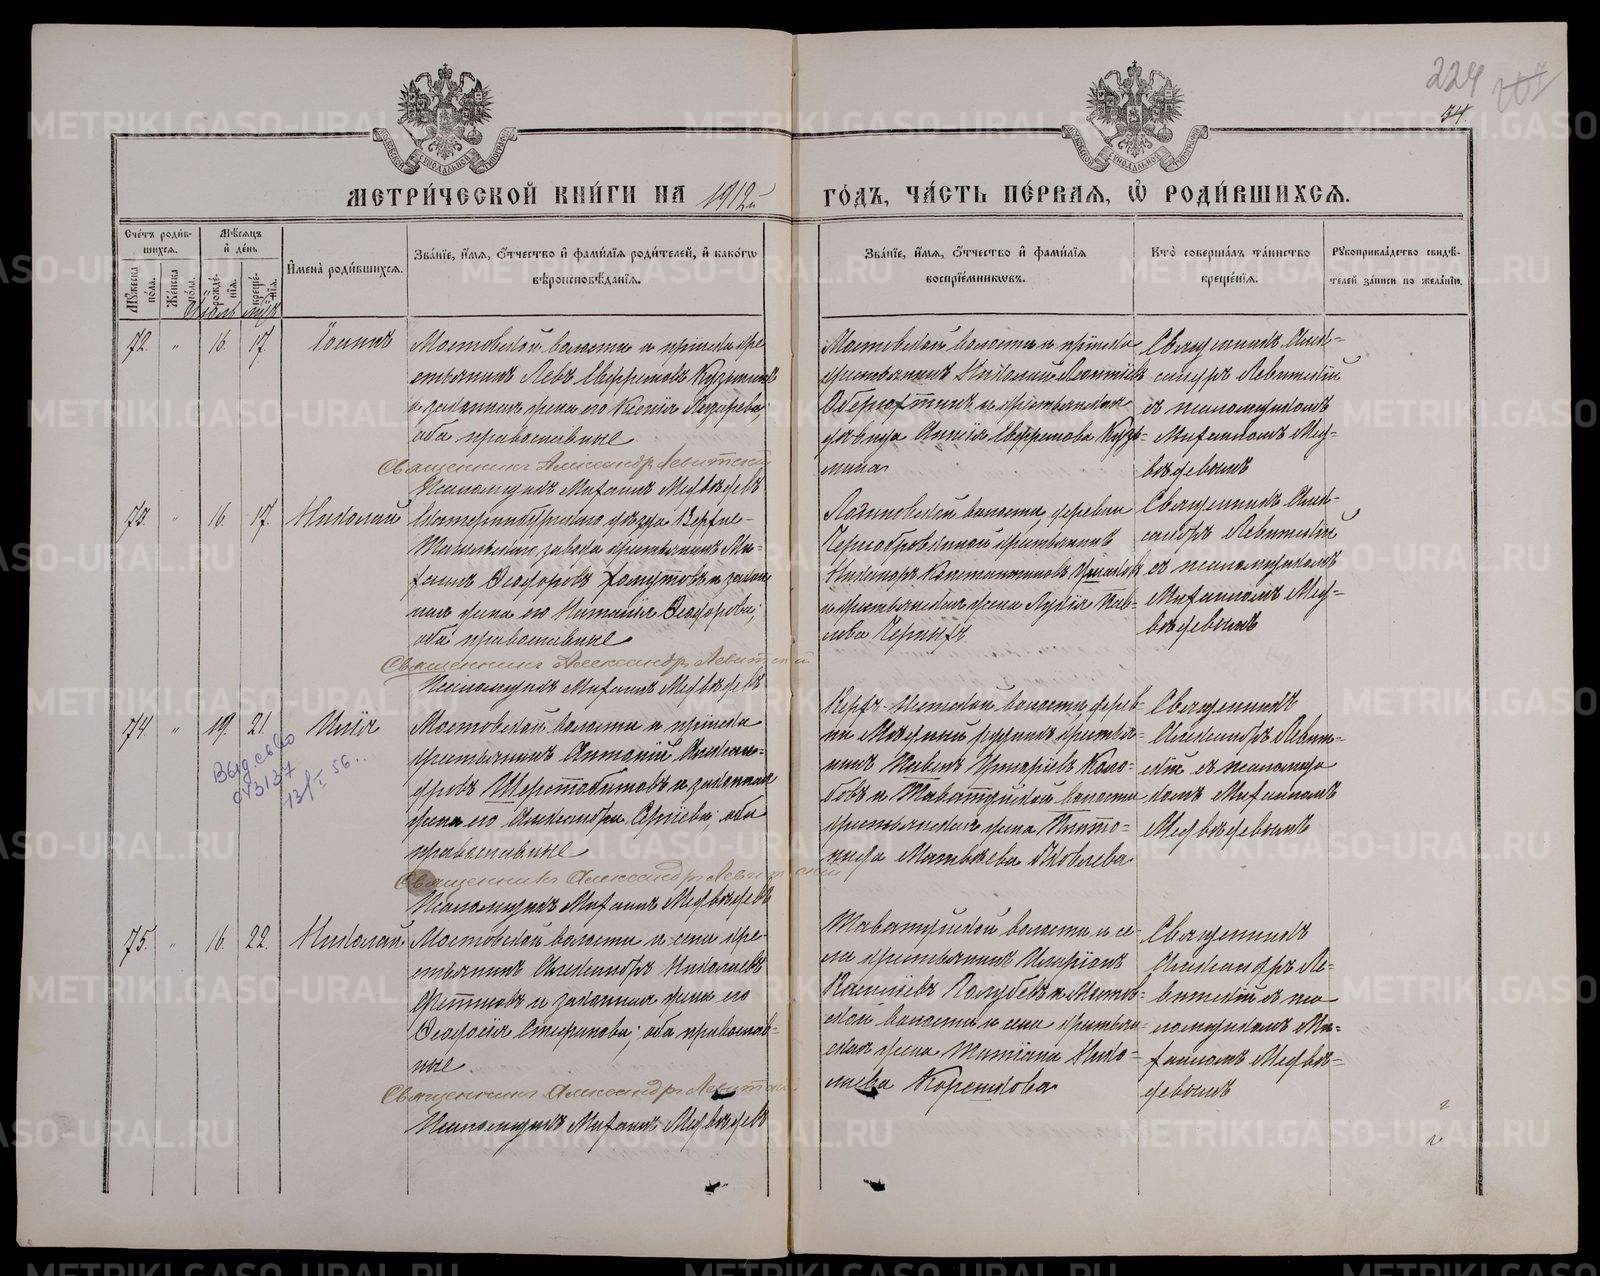 224
34.
МЕТРИ́ЧЕСКОЙ КНИ́ГИ НА 1912й ГО́ДЪ, ЧА́СТЬ ПЕ́РВАЯ, Ѽ РОДИ́ВШИХСѦ.
Сче́тъ роди́вшихсѧ.
Мѣ́сѧцъ и҆ де́нь.
И҆мена̀ роди́вшихсѧ.
Зва́нїе, и҆́мѧ, ѻ҆́тчество и҆ фами́лїѧ роди́телей, и҆ како́гѡ вѣ̀роисповѣ́данїѧ.
Мꙋ́жеска по́ла.
Же́нска по́ла.
рожде́нїѧ.
креще́нїѧ.
Зва́нїе, и҆́мѧ, ѻ҆́тчество и҆ фами́лїѧ воспрїе́мникѡвъ.
Кто̀ соверша́лъ та́инство креще́нїѧ.
Рꙋкоприкла́дство свидѣ́телей за́писи по жела́нїю.
72. " 16 17. Іоаннъ
Мостовской волости и прiиска кре-
стьянинъ Левъ Евфремовъ Кузьминъ
и законная жена его Ксенія Лазарева;
оба православные
Священникъ Александръ Левитскій
Псаломщикъ Михаилъ Медвѣдевъ
Мостовской волости и прiиска
крестьянинъ Николай Леонтiевъ
и крестьянская
дѣвица Анисія Евфремова Кузь-
мина
Священникъ Алек-
сандръ Левитскій
съ псаломщикомъ
Михаиломъ Мед-
вѣдевымъ
73. " 16. 17. Николай
Екатеринбургскаго уѣзда Верхне-
Тагильскаго завода крестьянинъ Ми-
хаилъ Ѳеодоровъ Хомутовъ и закон-
ная жена его Наталія Ѳеодорова;
оба православные
Священникъ Александръ Левитскій
Псаломщикъ Михаилъ Медвѣдевъ
волости деревни
крестьянинъ
Никаноръ Константиновъ
и крестьянская жена Лукія Пав-
лова Черныхъ
Священникъ Алек-
сандръ Левитскій
съ псаломщикомъ
Михаиломъ Мед-
вѣдевымъ
74. " 19. 21. Илія
Выд. св-во
043137
13/I 56..
Мостовской волости и прiиска
крестьянинъ Антоній Алексан-
дровъ Шерстобитовъ и законная
жена его Александра Сергіева; оба
православные
Священникъ Александръ Левитскій
Псаломщикъ Михаилъ Медвѣдевъ
Верхъ-Исетской волости дерев-
ни крестья-
нинъ Павелъ Григоріевъ Коло-
бовъ и Таватуйской волости
крестьянская жена Платo-
нида Матвѣева Яковлева
Священникъ
Александръ Левит-
скій съ псаломщи-
комъ Михаиломъ
Медвѣдевымъ
75. " 16. 22. Николай
Мостовской волости и села кре-
стьянинъ Александръ Николаевъ
Фетисовъ и законная жена его
Ѳеодосія Стефанова; оба православ-
ные.
Священникъ Александръ Левитскій
Псаломщикъ Михаилъ Медвѣдевъ
Таватуйской волости и се-
ла крестьянинъ Иларіонъ
Василіевъ Голубевъ и Мостов-
ской волости и села крестьян-
ская жена Татіана Нико-
лаева Корешкова
Священникъ
Александръ Ле-
витскій съ пса-
ломщикомъ Ми-
хаиломъ Медвѣ-
девымъ
METRIKI.GASO-URAL.RU